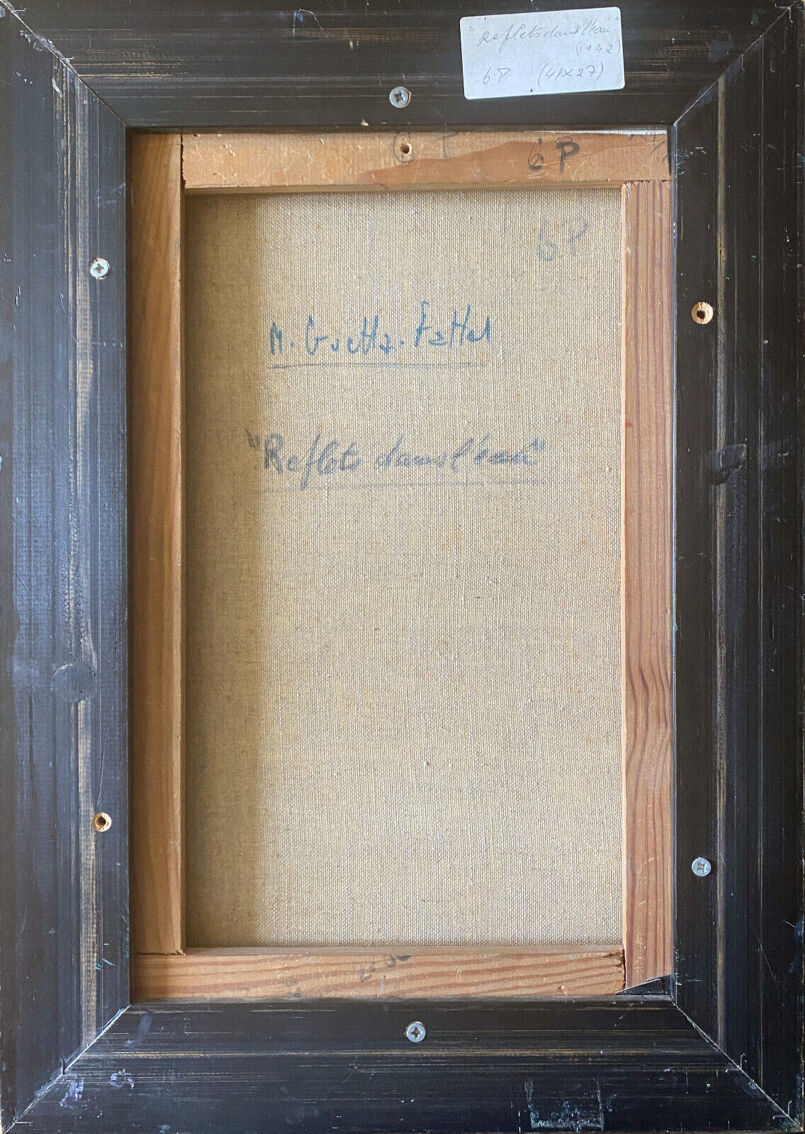 "Reflets dans l'eau"
(1942)
6P (41x27)
6P
6P
M. Guetta. Fattal
"Reflets dans l'eau"